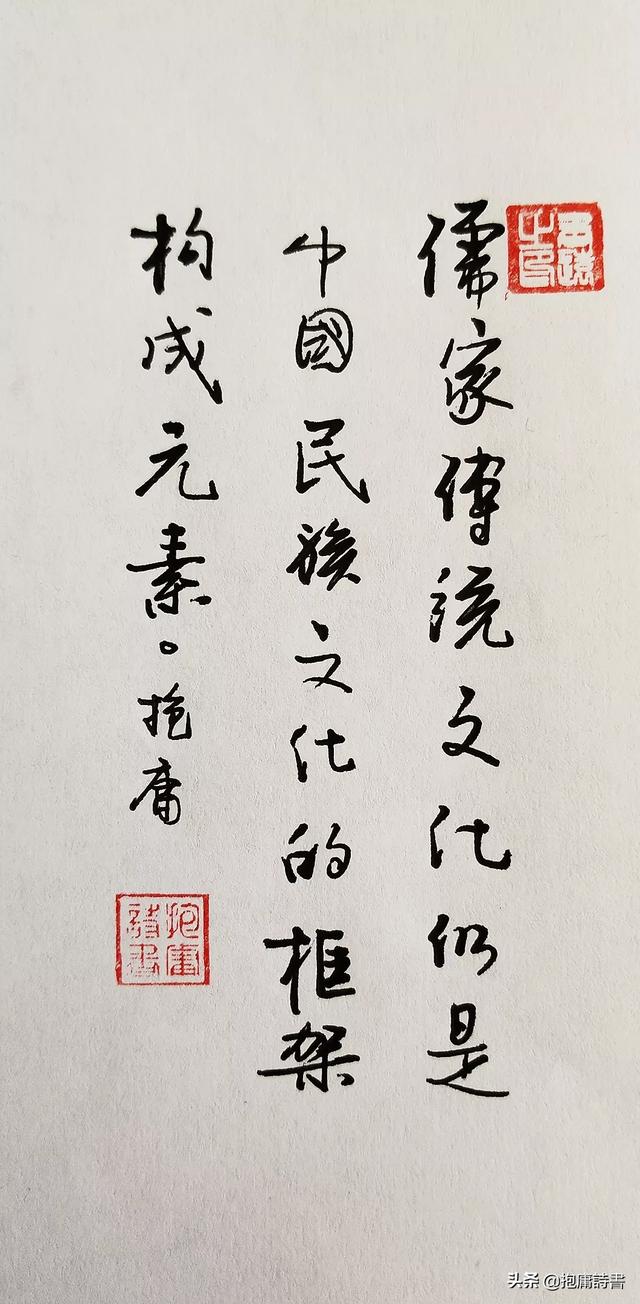 儒家傳統文化仍是
中國民族文化的框架
构成元素。抱庸
抱庸
詩書
头条 @抱庸詩書